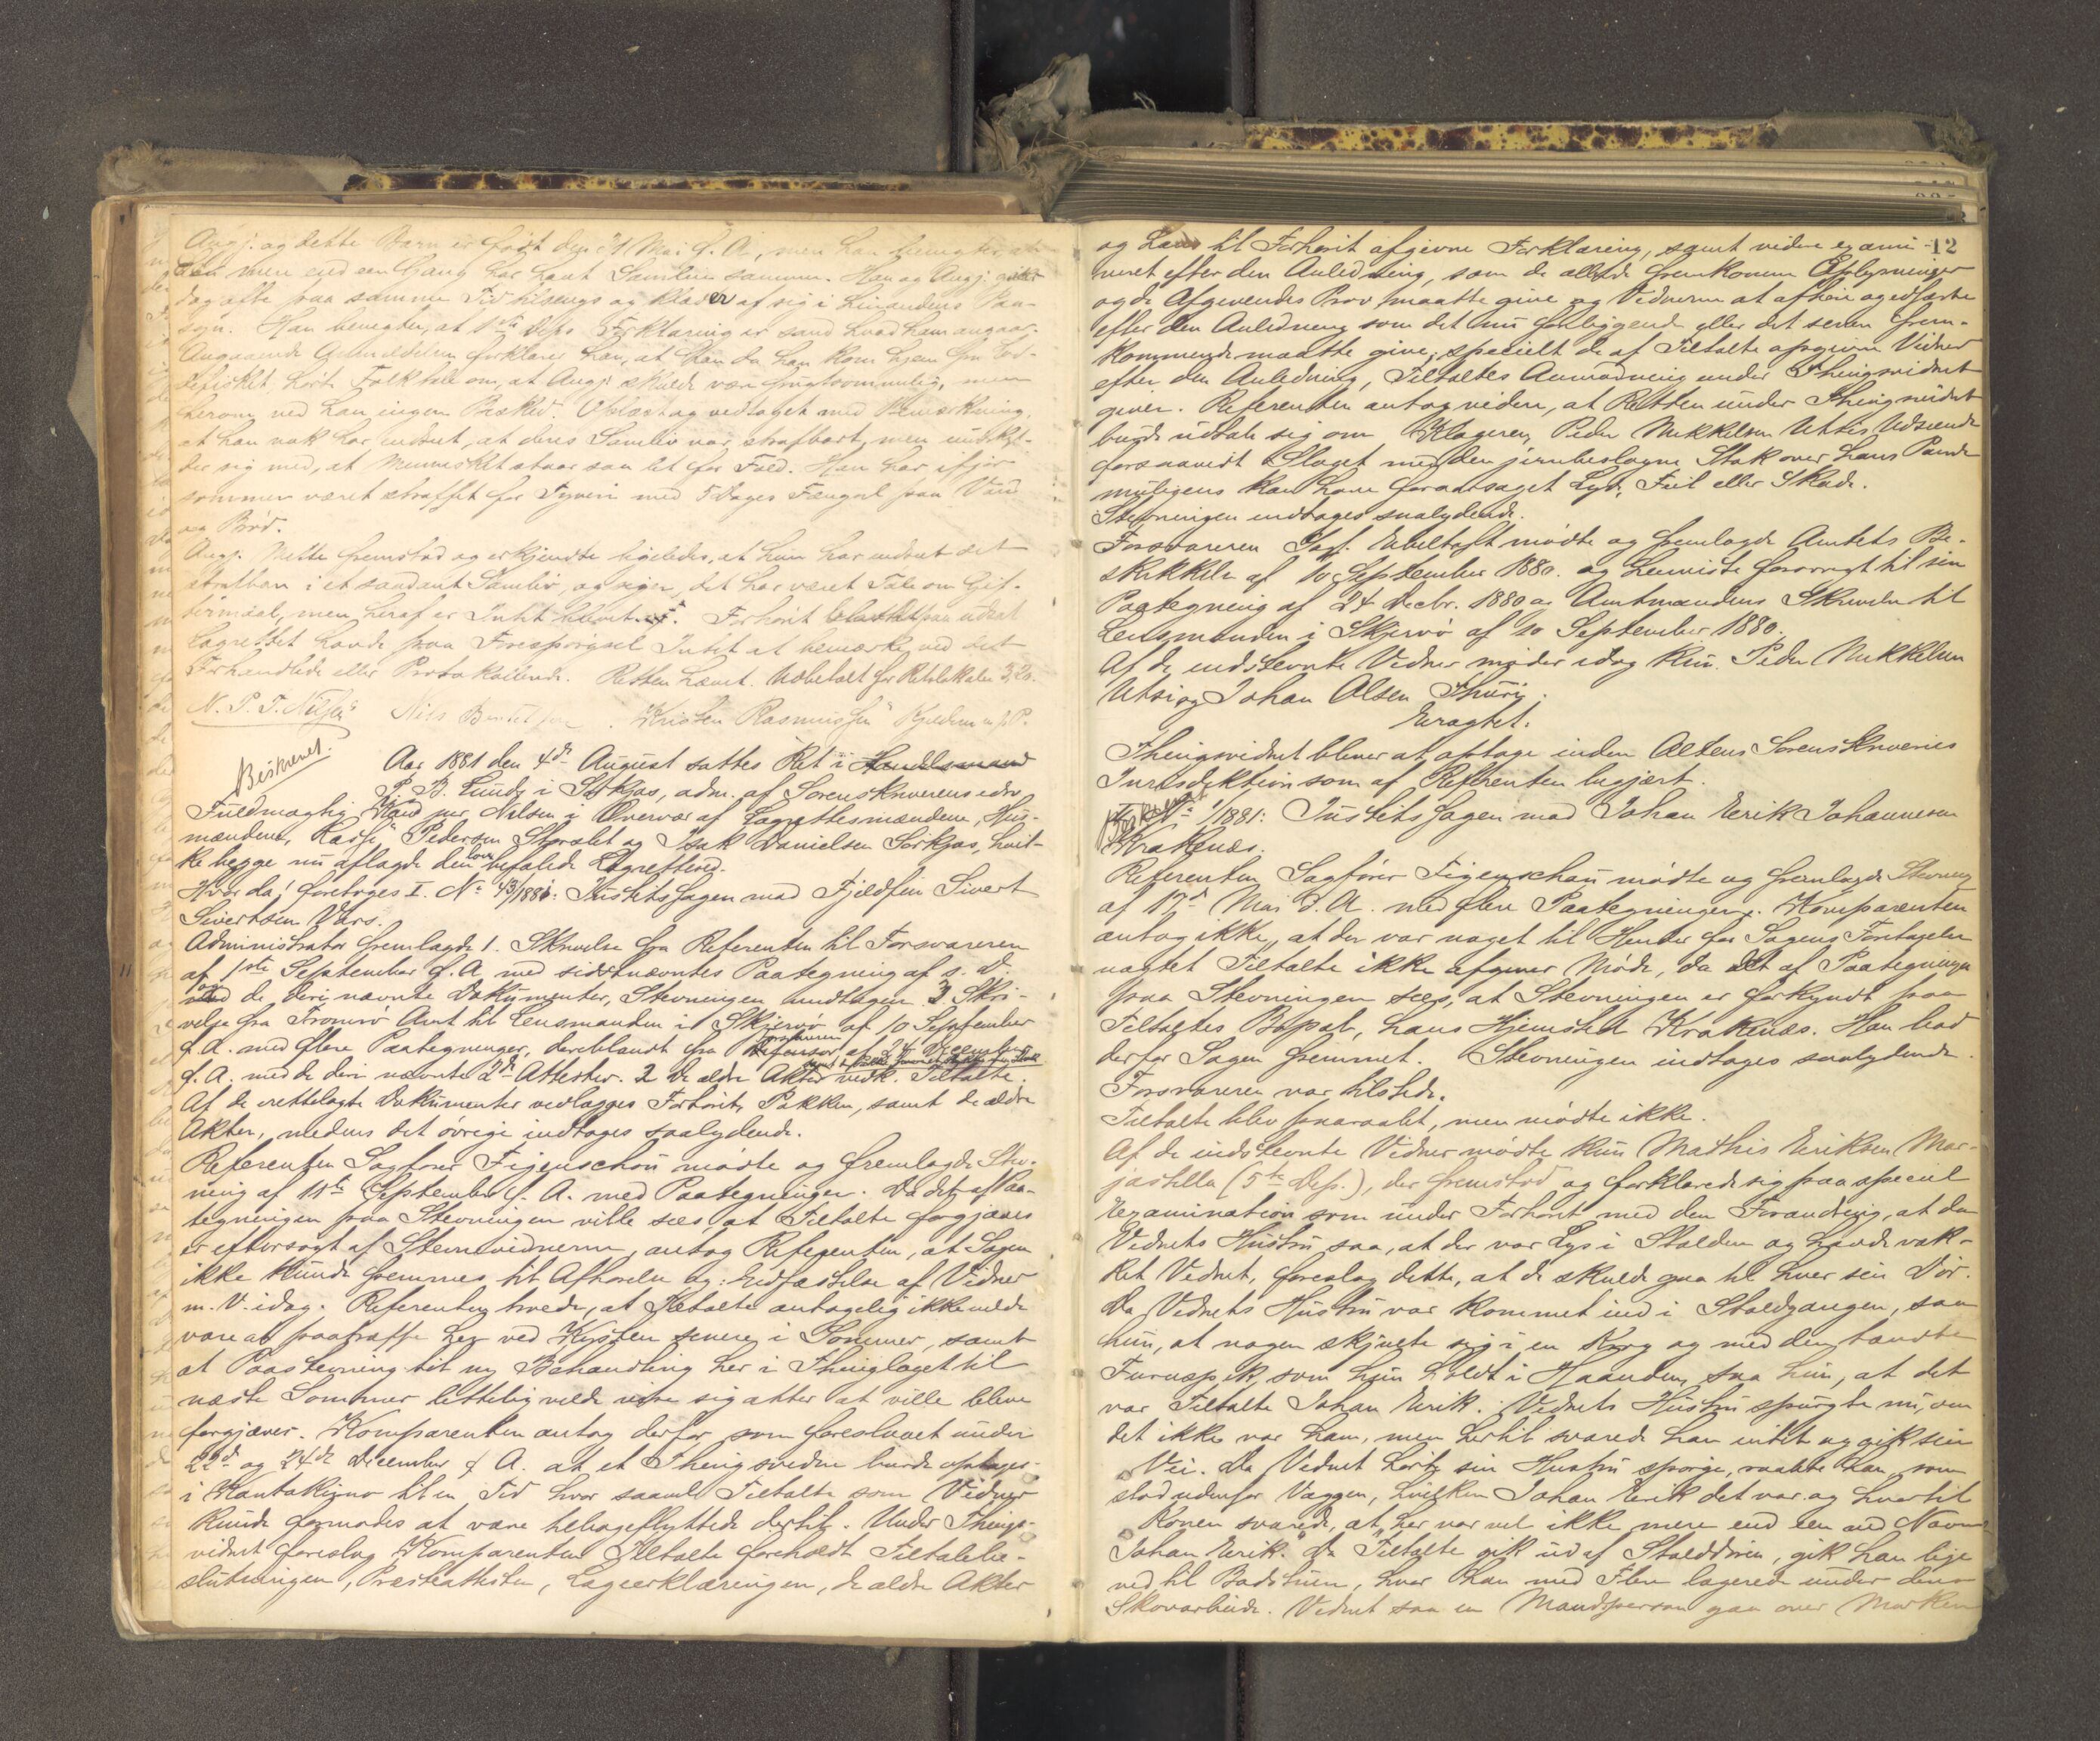 Angj. og dette Barn er født den 31 Mai f. A., men han benegter, at
de mere end een Gang har havt Samleie sammen. Han og Angj. gik
dog ofte paa samme Tid tilsengs og klæder af sig i hinandens Paa-
syn. Han benegter, at 1ste Deps Forklaring er sand hvad ham angaar.
Angaaende forklarer han, at han da han kom hjem fra Lod-
defisket hørte Folk tale om, at Angj. skulde være frugtsommelig, men
herom ved han ingen Besked. Oplæst og vedtaget med Bemærkning,
at han nok har indseet, at deres Samleie var strafbart, men undskyl-
der sig med, at Mennesket staar saa let for Fald. Han har ifjor
sommer været straffet for Tyveri med 5 Dages Fængsel paa Vand
og Brød.
Angj. Mette fremstod og erkjendte ligeledes, at hun har indseet det
strafbare i et saadant Samleie, og siger, det har været Tale om Gif-
termaal, men heraf er Intet blevet. Forhøret udsat
Lagrettet havde paa Forespørgsel Intet at bemærke ved det
Forhandlede eller Protokollerede. Retten hævet. Ubetalt for Retslokale 3,20.
N. P. T. Nilsen Nils . Kristen Rasmussen Kjeldern m. p. P.
Beskrevet.
Aar 1881 den 4de August sattes Ret i Handelsmand
P. B. Lunds i Sørkjos, adm. af Sorenskriverens edsv.
Fuldmægtig Nilsen i Overvær af Lagrettesmændene, Hus-
mændene, Rasj Pedersen Storslet og Isak Danielsen Sørkjos, hvil-
ke begge nu aflagde den lovbefalede Lagretteed.
Hvor da! foretoges I. No 43/1880: Justitssagen mod Fjeldfin Sivert
Sivertsen Vars.
Administrator fremlagde 1. Skrivelse fra Referenten til Forsvareren
af 1ste September f. A. med sidstnævntes Paategning af s. D.
og de deri nævnte Dokumenter, Stevningen undtagen. 3. Skri-
velse fra Tromsø Amt til Lensmanden i Skjervø af 10 September
f. A. med flere Paategninger, deriblandt fra Forsvareren af 24 December
f. A. med de deri nævnte 2de Attester. 2 De ældre Akter vedk. Tiltalte.
Af de irettelagte Dokumenter vedlægges Forhørets Pakken, samt de ældre
Akter, medens det øvrige indtages saalydende.
Referenten Sagfører Figenschou mødte og fremlagde Stev-
ning af 11te September f. A. med Paategninger. Da det af Paa-
tegningen paa Stevningen ville sees, at Tiltalte forgjæves
er eftersøgt af Stevnevidnerne, antog Referenten, at Sagen
ikke kunde fremmes til Afhørelse og Eidfæstelse af Vidner
m. V. idag. Referenten troede, at Tiltalte antagelig ikke vilde
være at paatræffe her ved Kysten senere i Sommer, samt
at Paastevning til ny Behandling her i Thinglaget til
næste Sommer lettelig vilde vise sig atter at ville blive
forgjæves. Komparenten antog derfor som foreslaaet under
22de og 24de December f. A. at et Thingsvidne burde optages
i Kautokeino til en Tid hvor saavel Tiltalte som Vidner
kunde formodes at være tilbageflyttede dertil. Under Things-
vidnet foreslog Komparenten Tiltalte foreholdt Tiltalebe-
slutningen, Præsteattesten, Lægeerklæringen, de ældre Akter
12
og hans til Forhørit afgivne Forklaring, samt videre exami-
neret efter den Anledning, som de allede fremkomne Oplysninger
og de Afgivendes Prov maatte give og Vidnerne at afhøre og edfæste
efter den Anledning som det nu foreliggende eller det senere frem-
kommende maatte give, specielt de af Tiltalte opgivne Vidner
efter den Anledning, Tiltaltes Anmodning under Thingsvidnet
giver. Referenten antog videre, at Retten under Thingsvidnet
burde udtale sig om Klageren Peder Mikkelsen Utsis Udseende
forsaavidt Slaget med den jernbeslagne Stok over hans Pande
muligens kan have foraarsaget Lyde, Feil eller Skade.
Stevningen indtages saalydende.
Forsvareren Sagf. Ebeltoft mødte og fremlagde Amtets Be-
skikkelse af 10 September 1880. og henviste forøvrigt til sin
Paategning af 24 Decbr. 1880 paa Amtmandens Skrivelse til
Lensmanden i Skjervø af 10 September 1880.
Af de indstevnte Vidner møder idag kun Peder Mikkelsen
Utsi og Johan Olsen Thuri.
Eragtet:
Thingsvidnet bliver at optage inden Altens Sorenskriveries
Jurisdiktion som af Referenten begjært.
No 1/1881: Justitssagen mod Johan Erik Johannesen
Krakenæs.
Referenten Sagfører Figenschou mødte og fremlagde Stevning
af 17de Mai d. A. med flere Paategninger. Komparenten
antog ikke, at der var noget til Hinder for Sagens Foretagelse
uagtet Tiltalte ikke afgiver Møde, da det af Paategningen
paa Stevningen sees, at Stevningen er forkyndt paa
Tiltaltes Bopæl, hans Hjemsted Krakenæs. Han bad
derfor Sagen fremmet. Stevningen indtages saalydende.
Forsvareren var tilstede.
Tiltalte blev paaraabt, men mødte ikke.
Af de indstevnte Vidner mødte kun Mathis Eriksen Mar-
jastilla (5te Dep.), der fremstod og forklarede sig paa speciel
Examination som under Forhørit med den Forandring, at da
Vidnets Hustru saa, at der var Lys i Stalden og havde væk-
ket Vidnet, foreslog dette, at de skulde gaa til hver sin Dør.
Da Vidnets Hustru var kommet ind i Staldgangen, saa
hun, at nogen skjulte sig i en Krog og med den tændte
Furuspik, som hun holdt i Haanden, saa hun, at det
var Tiltalte Johan Erik. Vidnets Hustru spurgte nu, om
det ikke var ham, men hertil svarede han intet og gik sin
Vei. Da Vidnet hørte sin Hustru spørge, raabte han, som
stod udenfor Væggen, hvilken Johan Erik det var og hvortil
Konen svarede, at „her var vel ikke mere end een ved Navn
Johan Erik.“ Da Tiltalte gik ud af Stalddøren, gik han lige
ved til Badstuen, hvor han med Flere logerede under deres
Skovarbeide. Vidnet saa en Mandsperson gaa over Marken